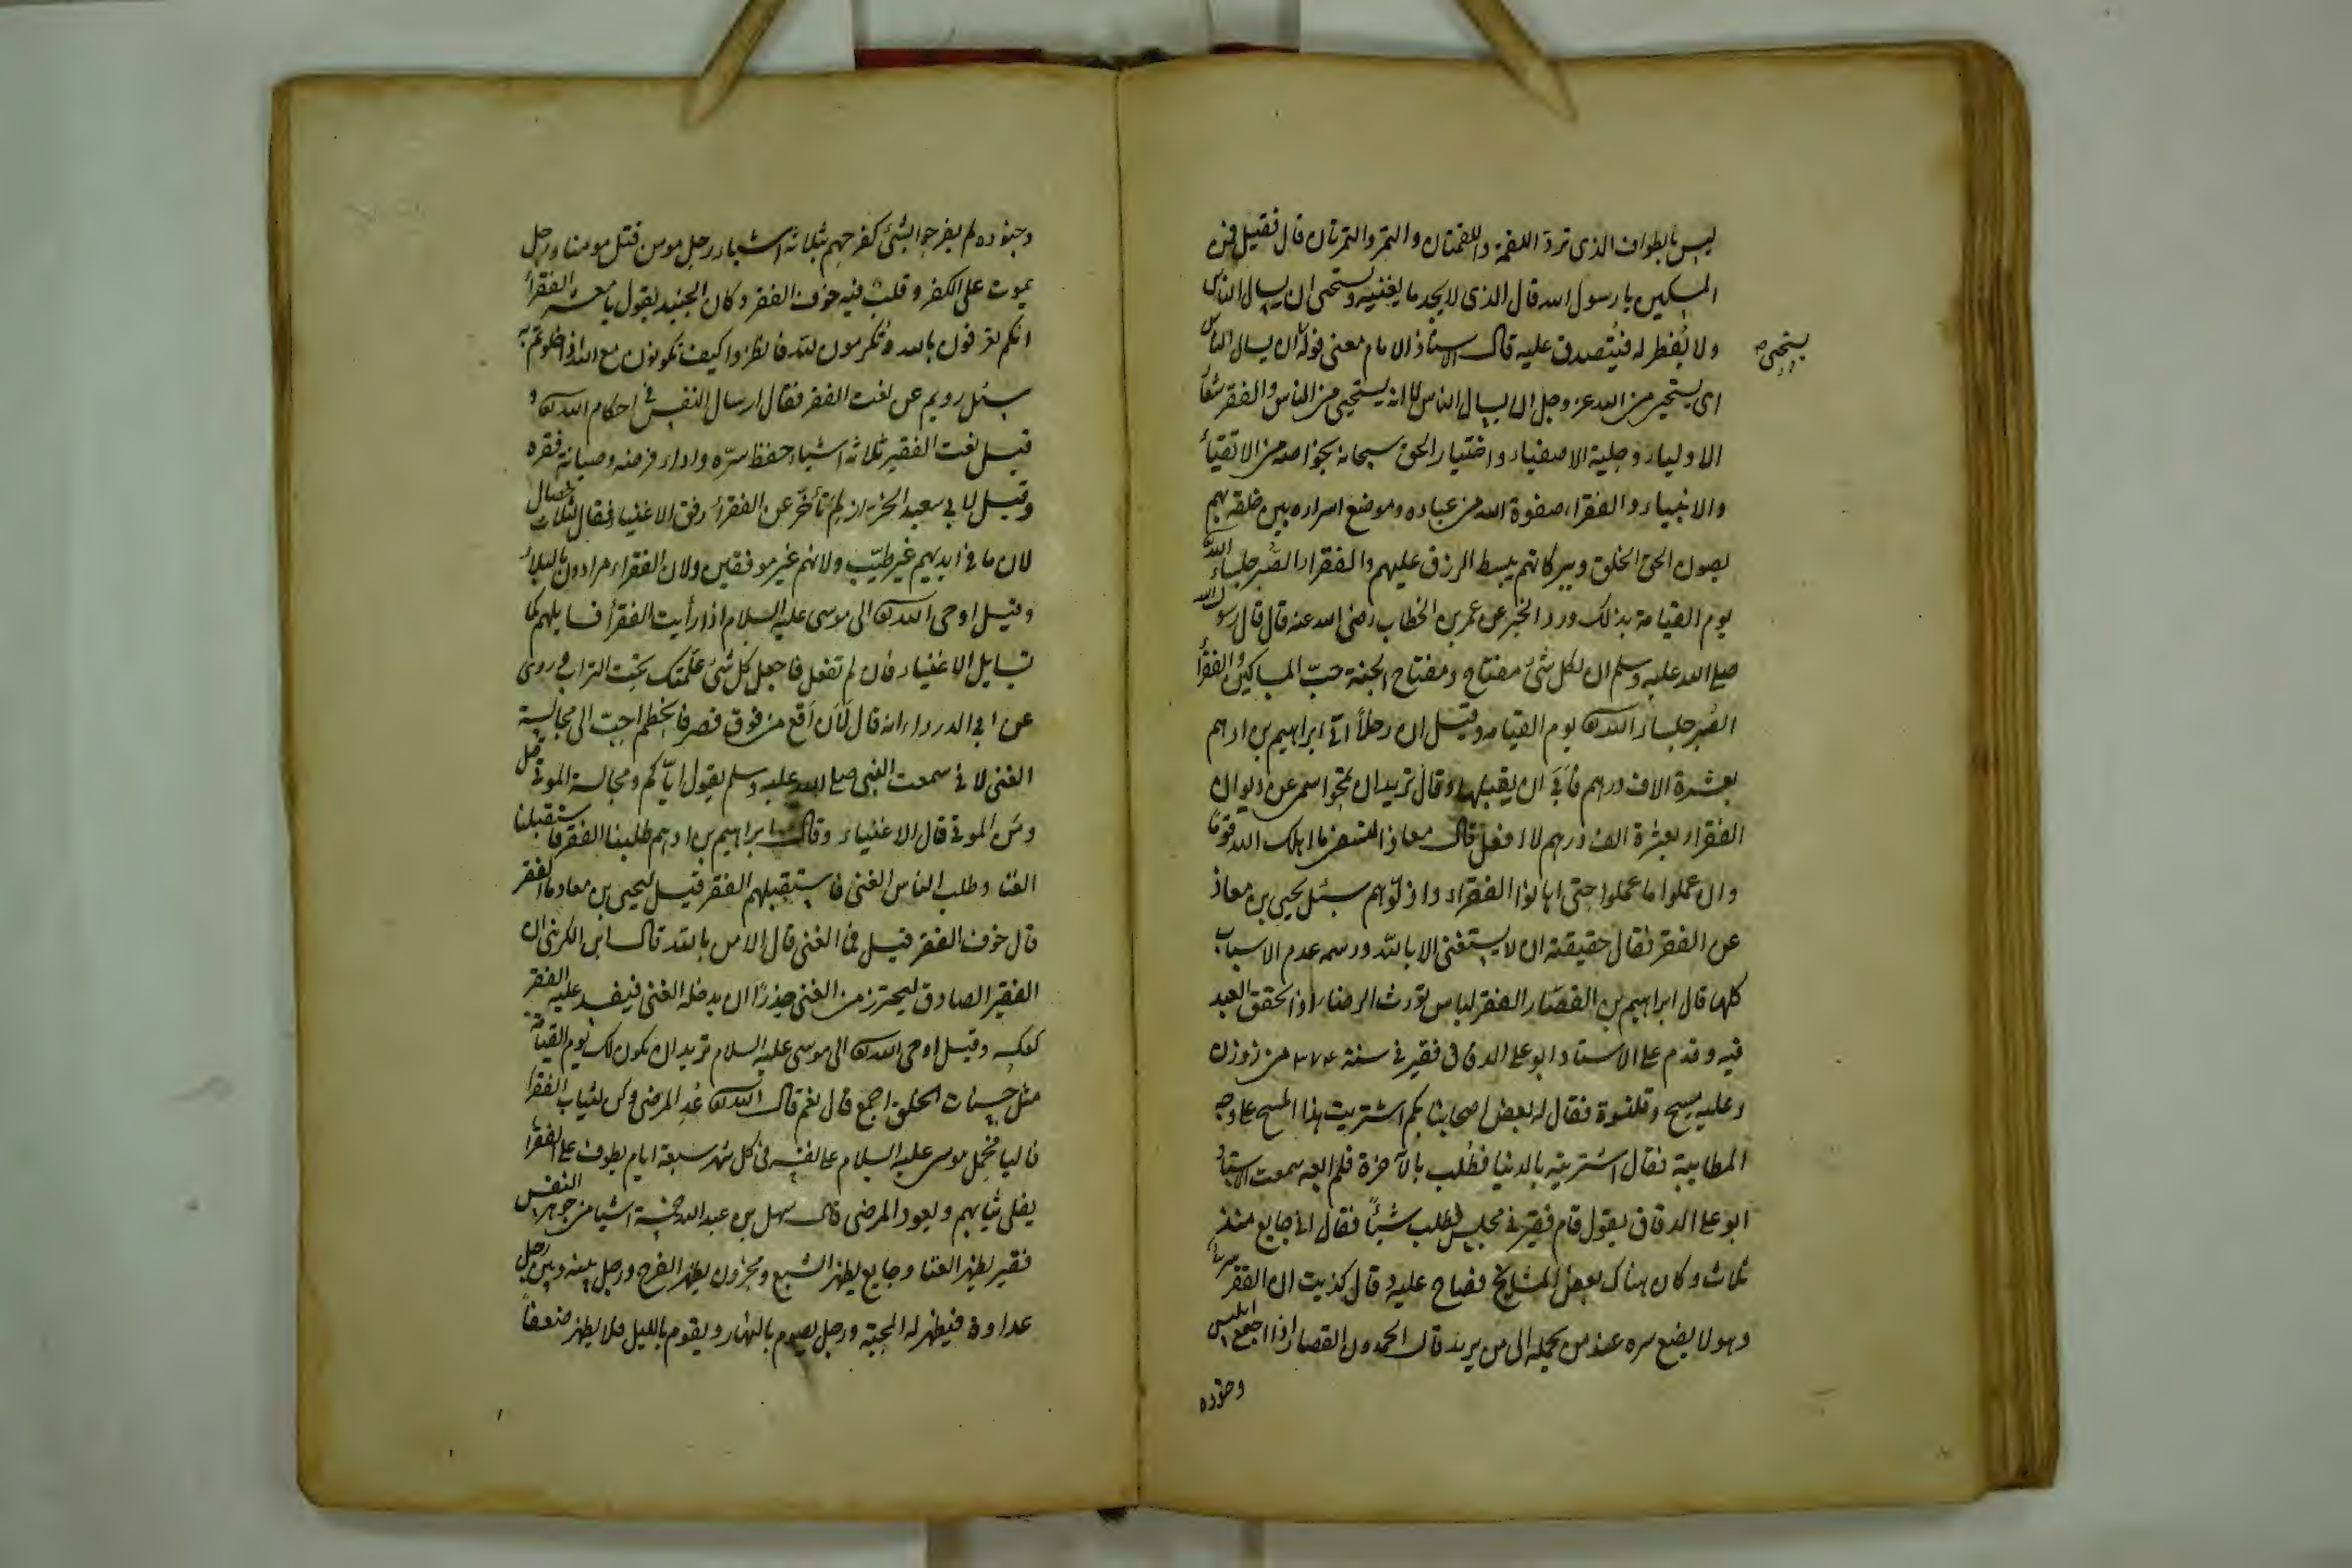 ليس بالطواف الذى تردّ اللقمة واللقمتان والتمرة والتمرتان قال فقيل فمن
المسكين يا رسول الله قال الذى لا يجد ما يغنيه ويستحيى ان يسال الناس
ولا يُفطر له فيُتصدق عليه قال الاستاذ الامام معنى قوله ان يسال الناس
يستحيى
اى يستحيى من الله عز وجل ان يسال الناس لا انه يستحيى من الناس والفقر شعار
الاولياء وحلية الاصفياء واختيار الحق سبحانه بخواصه من الاتقياء
والانبياء والفقراء صفوة الله من عباده وموضع اسراره بين خلقه بهم
يصون الحق الخلق وببركاتهم يبسط الرزق عليهم والفقراء الصُّبر جلساء الله
يوم القيامة بذلك ورد الخبر عن عمر بن الخطاب رضى الله عنه قال قال رسول الله
صلى الله عليه وسلم ان لكل شئ مفتاح ومفتاح الجنة حبّ المساكين والفقراء
الصُّبر جلساء الله تعالى يوم القيامة وقيل ان رجلاً اتى ابراهيم بن ادهم
بعشرة الاف درهم فأبى ان يقبلها وقال تريد ان تمحوا اسمى عن ديوان
الفقراء بعشرة الف درهم لا افعل قال معاذ النسفى ما اهلك الله قومًا
وان عملوا ما عملوا حتى اهانوا الفقراء واذلّوهم سئل يحيى بن معاذ
عن الفقر فقال حقيقته ان لا يستغنى الا بالله ورسمه عدم الاسباب
كلها قال ابراهيم بن القصّار الفقر لباس يورث الرضا اذا تحقق العبد
فيه وقدم على الاستاد ابو على الدقاق فقير فى سنة ٣٧٤ من زوزن
وعليه مسح وقلنسوة فقال له بعض اصحابنا بكم اشتريت هذا المسح على وجه
المطايبة فقال اشتريته بالدنيا فطُلب بالآخرة فلم ابعه سمعت الاستاد
ابو على الدقاق يقول قام فقير فى مجلس فطلب شيئاً فقال انى جايع منذ
ثلاث وكان هناك بعض المشايخ فصاح عليه وقال كذبت ان الفقر سر الله
وهو لا يضع سره عند من يحمله الى من يريد قال الحمدون القصار اذا اجتمع ابليس
وجنوده
وجنوده لم يفرحوا بشئ كفرحهم بثلاثة اشياء رجل مومن قتل مومنا ورجل
يموت على الكفر وقلب فيه خوف الفقر وكان الجنيد يقول يا معشر الفقراء
انكم تعرفون بالله وتُكرمون لله فانظروا كيف تكونون مع الله اذا خلوتم به
سئل رويم عن نعت الفقر فقال ارسال النفس فى احكام الله تعالى و
قيل نعت الفقير ثلاثة اشياء حفظ سرّه واداء فرضه وصيانة فقره
وقيل لابى سعيد الخراز لم تأخّر عن الفقراء رفق الاغنياء فقال لثلاث خصال
لان ما فى ايديهم غير طيّب ولانهم غير موفقين ولان الفقراء مرادون بالبلاء
وقيل اوحى الله تعالى الى موسى عليه السلام اذا رأيت الفقراء فسايلهم كما
تسايل الاغنياء فان لم تفعل فاجعل كل شئ علّمتك تحت التراب روى
عن ابى الدرداء انه قال لَأن اَقع من فوق قصر فانحطم احبّ الى مجالسة
الغنى لانى سمعت النبى صلى الله عليه وسلم يقول ايّاكم ومجالسة الموتى قيل
ومن الموتى قال الاغنياء وقال ابراهيم بن ادهم طلبنا الفقر فاستقبلنا
الغنا وطلب الناس الغنى فاستقبلهم الفقر قيل ليحيى بن معاد ما الفقر
قال خوف الفقر قيل فما الغنى قال الامن بالله قال ابن الكرينى ان
الفقير الصادق ليحترز من الغنى حذرًا ان يدخله الغنى فيفسد عليه الفقر
كعكسه وقيل اوحى الله تعالى الى موسى عليه السلام تريد ان يكون لك يوم القيامة
مثل حسنات الخلق اجمع قال نعم قال الله تعالى عُد المرضى وكن لثياب الفقراء
فاليا فجعل موسى عليه السلام على نفسه فى كل شهر سبعة ايام يطوف على الفقراء
يفلى ثيابهم ويعود المرضى قال سهل بن عبد الله خمسة اشيا من جوهر النفس
فقير يظهر الغنا وجايع يظهر الشبع ومحزون يظهر الفرح ورجل بينه وبين رجل
عداوة فيظهر له المحبة ورجل يصوم بالنهار ويقوم بالليل فلا يظهر ضعفاً